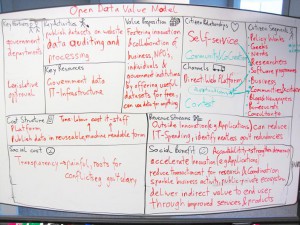 Open Data Value Model
Key Partners
government
departments
Legislative
approval
Key Activities
publish datasets on website
data auditing and
processing
Key Resources
Government data
IT-Infrastructure
Value Proposition
Fostering innovation
& collaboration of
business, NGOs,
individuals &
government institutions
by offering useful
datasets for free
can use data for anything
Citizen Relationships
Self-service
Community
Channels
Direct Web Platform
Contest
Citizen Segments
Policy Makers
Geeks
Nerds
Researchers
Software programmer
Business
Communities
Consultants
Cost Structure
Time labour cost it-staff
Platform
Publish data in reuseable, machine readable form
Revenue Streams
Outside innovation (e.g Applications) can reduce
IT-Spending, identify makes gov't redundancies
Social Cost
Transparency = painful, costs for
conflicting gov't
Social Benefit
Accountability + strengthen democracy
accelerate innovation (e.g Applications)
reduce Transactioncost for research & Coordination
sparkle business activity, public-private ecosystem
deliver indirect value to end user
through improved services & products